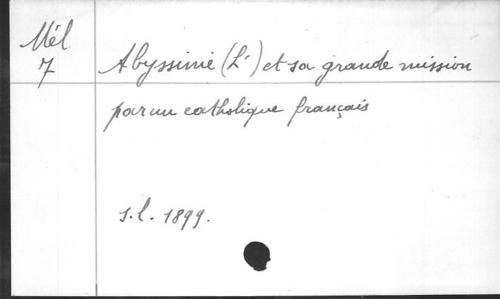 Mél
7
Abyssinie (L') et sa grande mission
par un catholique français
s.l. 1899.